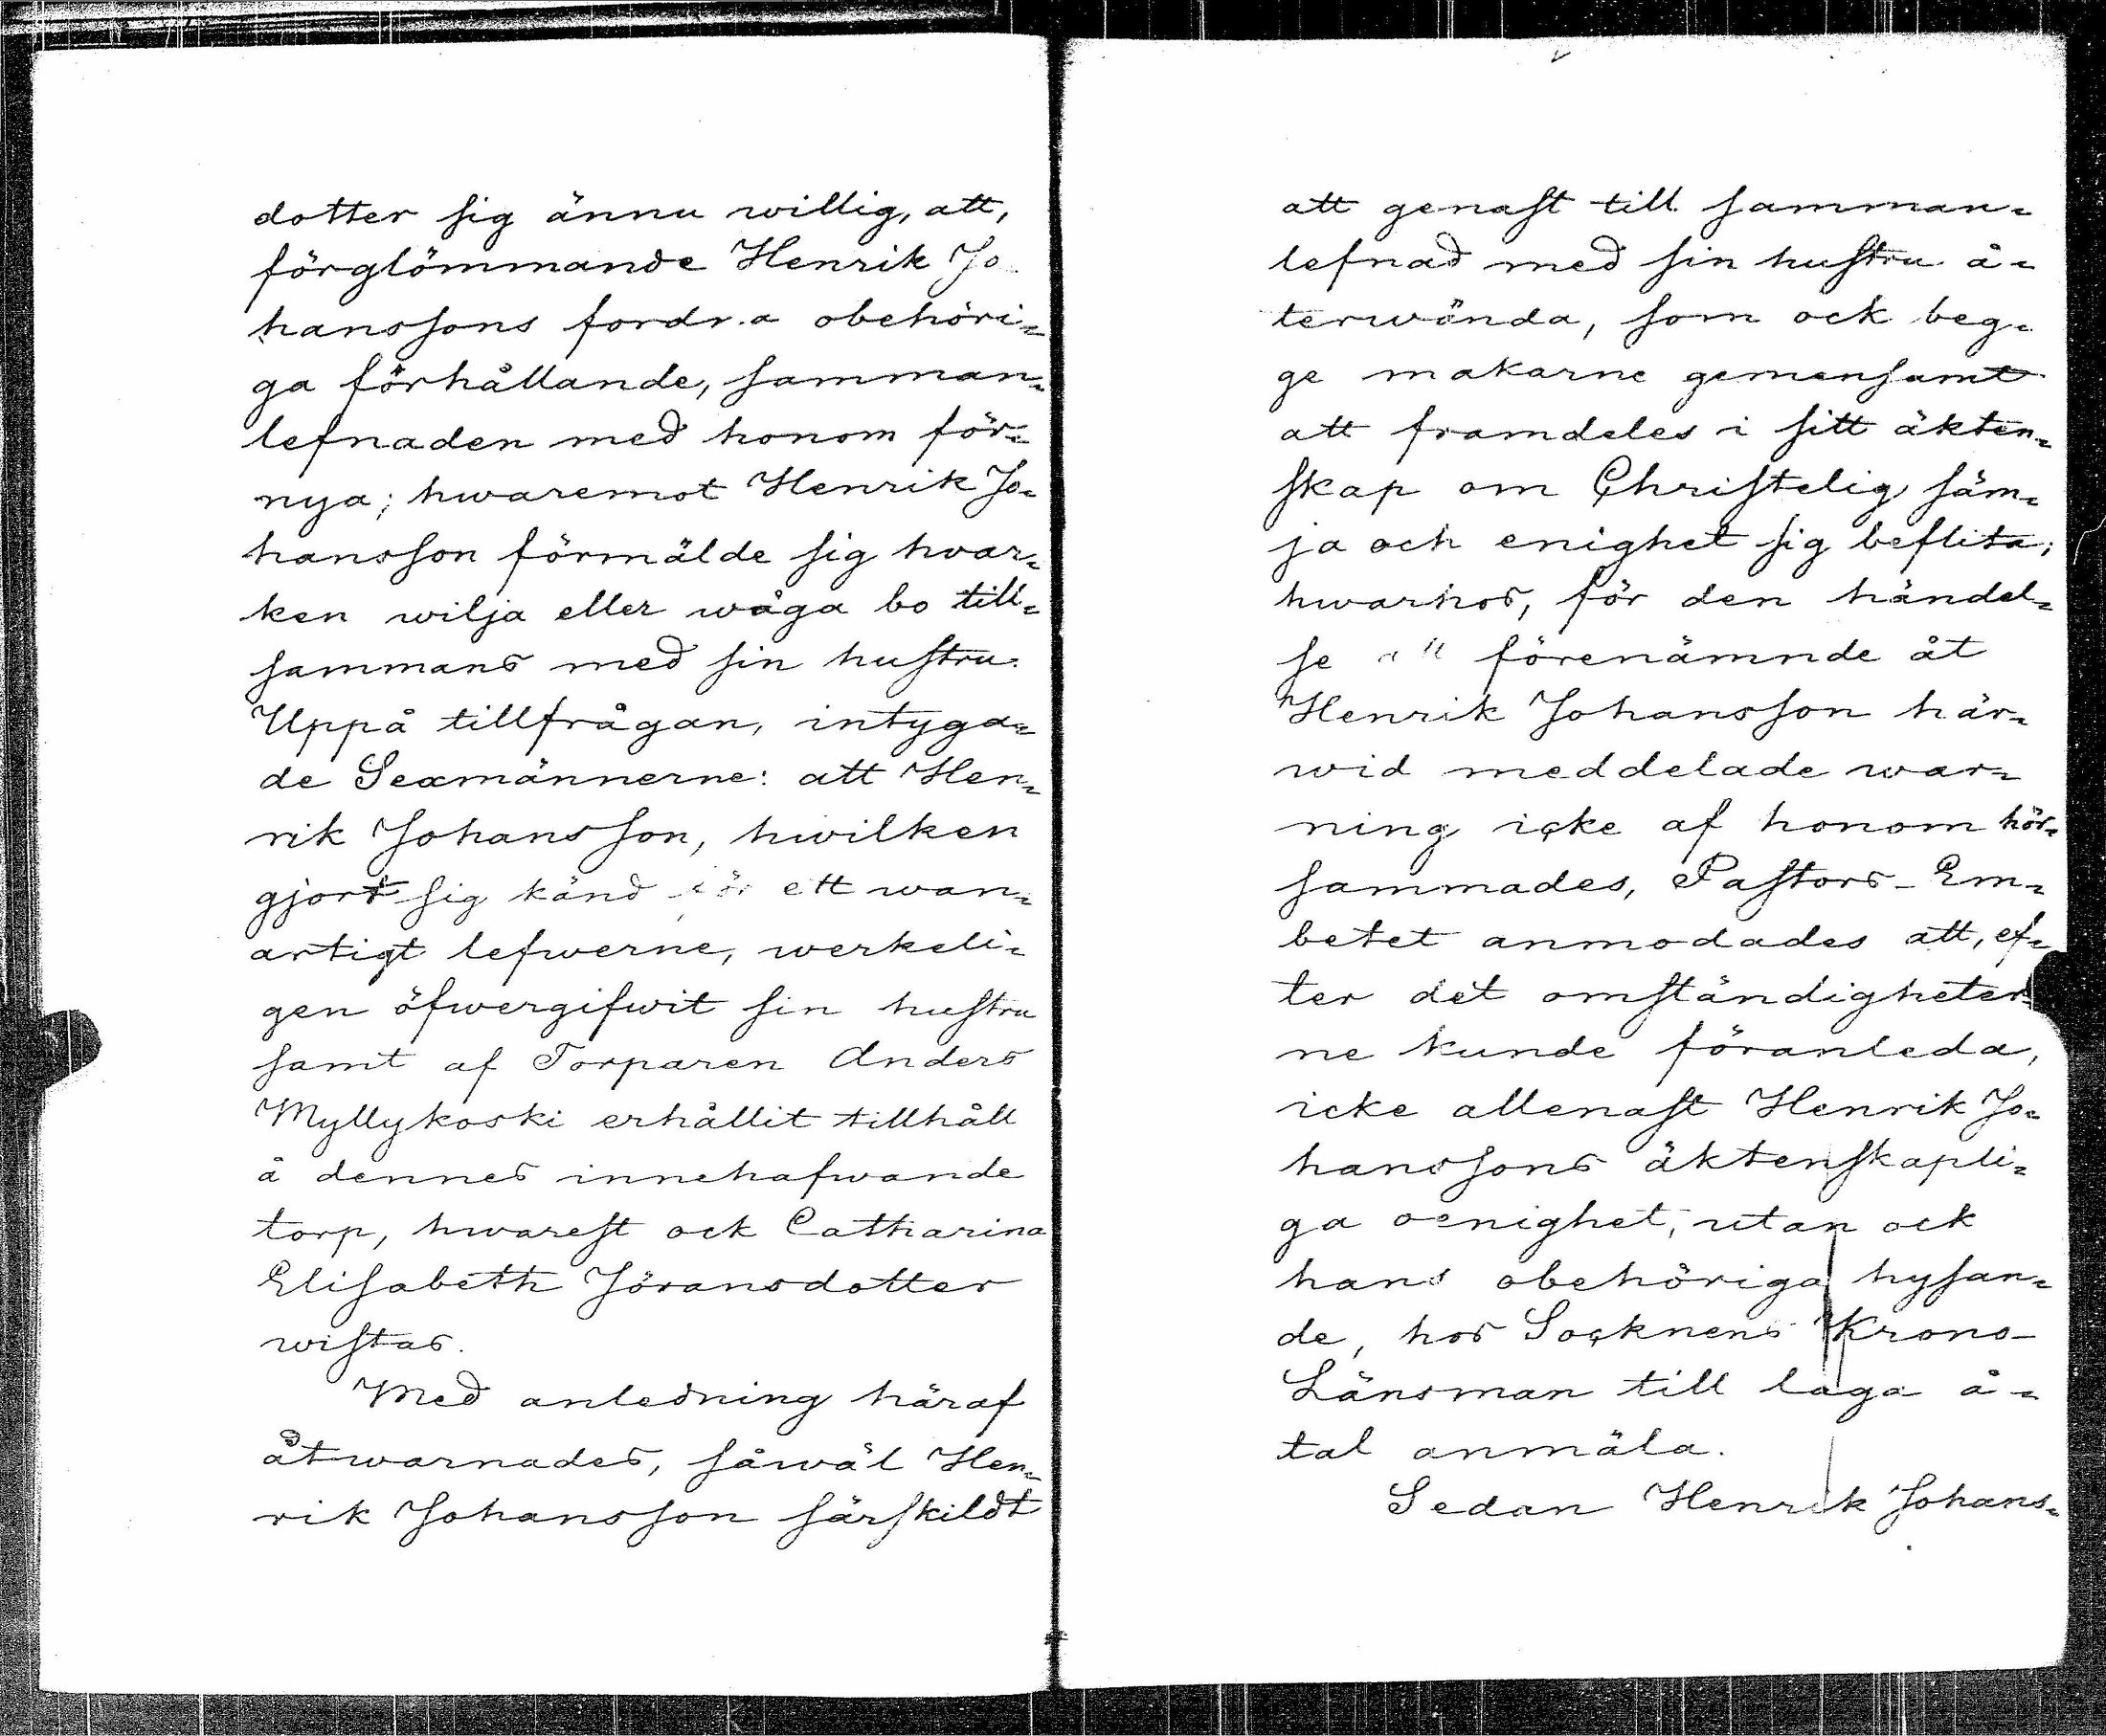 dotter sig ännu willig, att,
förglömmande Henrik Jo
hanssons fordr.a obehöri=
ga förhållande, samman=
lefnaden med honom för=
nya; hwaremot Henrik Jo=
hansson förmälde sig hvar=
ken wilja eller wåga bo till=
sammans med sin hustru.
Uppå tillfrågan, intyga=
de Sexmännerne: att Hen=
rik Johansson, hwilken
gjort sig känd för ett wan=
artigt lefwerne, werkeli=
gen öfwergifwit sin hustru
samt af Torparen Anders
Myllykoski erhållit tillhåll
å dennes innehafwande
torp, hwarest ock Catharina
Elisabeth Jöransdotter
wistas.
Med anledning häraf
åtwarnades, såwäl Hen=
rik Johansson särskildt
att genast till samman=
lefnad med sin hustru å=
terwända, som ock beg=
ge makarne gemensamt
att framdeles i sitt äkten=
skap om Christelig säm=
ja och enighet sig beflita;
hwarhos, för den händel=
se att förenämnde åt
Henrik Johansson här=
wid meddelade war=
ning icke af honom hör=
sammades, Pastors-Em=
betet anmodades att, ef=
ter det omständigheter=
ne kunde föranleda,
icke allenast Henrik Jo=
hanssons äktenskapli=
ga oenighet, utan ock
hans obehöriga hysan=
de, hos Socknens Krono-
Länsman till laga å=
tal anmäla.
Sedan Henrik Johans=